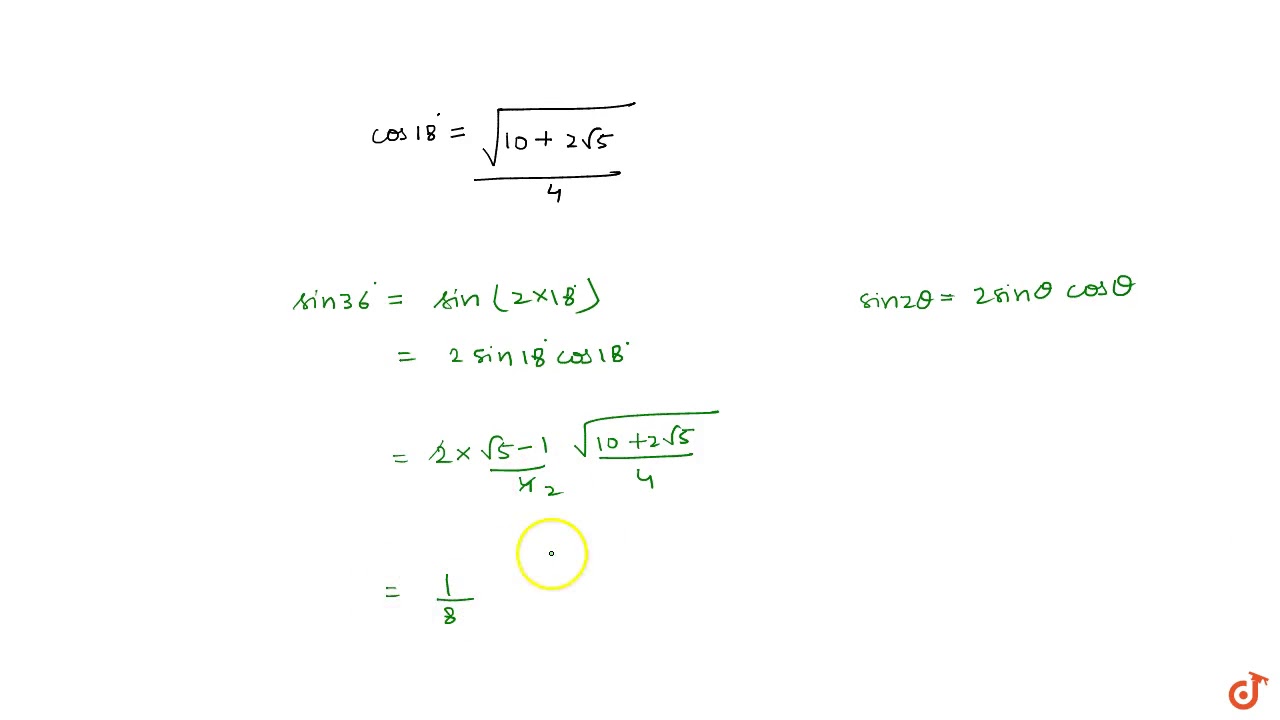 cos 18° = √(10 + 2√5) / 4
sin 36° = sin (2×18°)
sin2θ = 2sinθ cosθ
= 2 sin 18° cos 18°
= 2 × (√5 − 1)/4 2 √(10 + 2√5) / 4
= 1/8